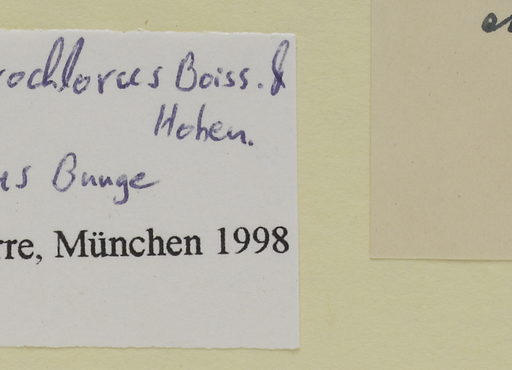 rochlorus Boiss. &
Hohen.
us Bunge
rre, München 1998